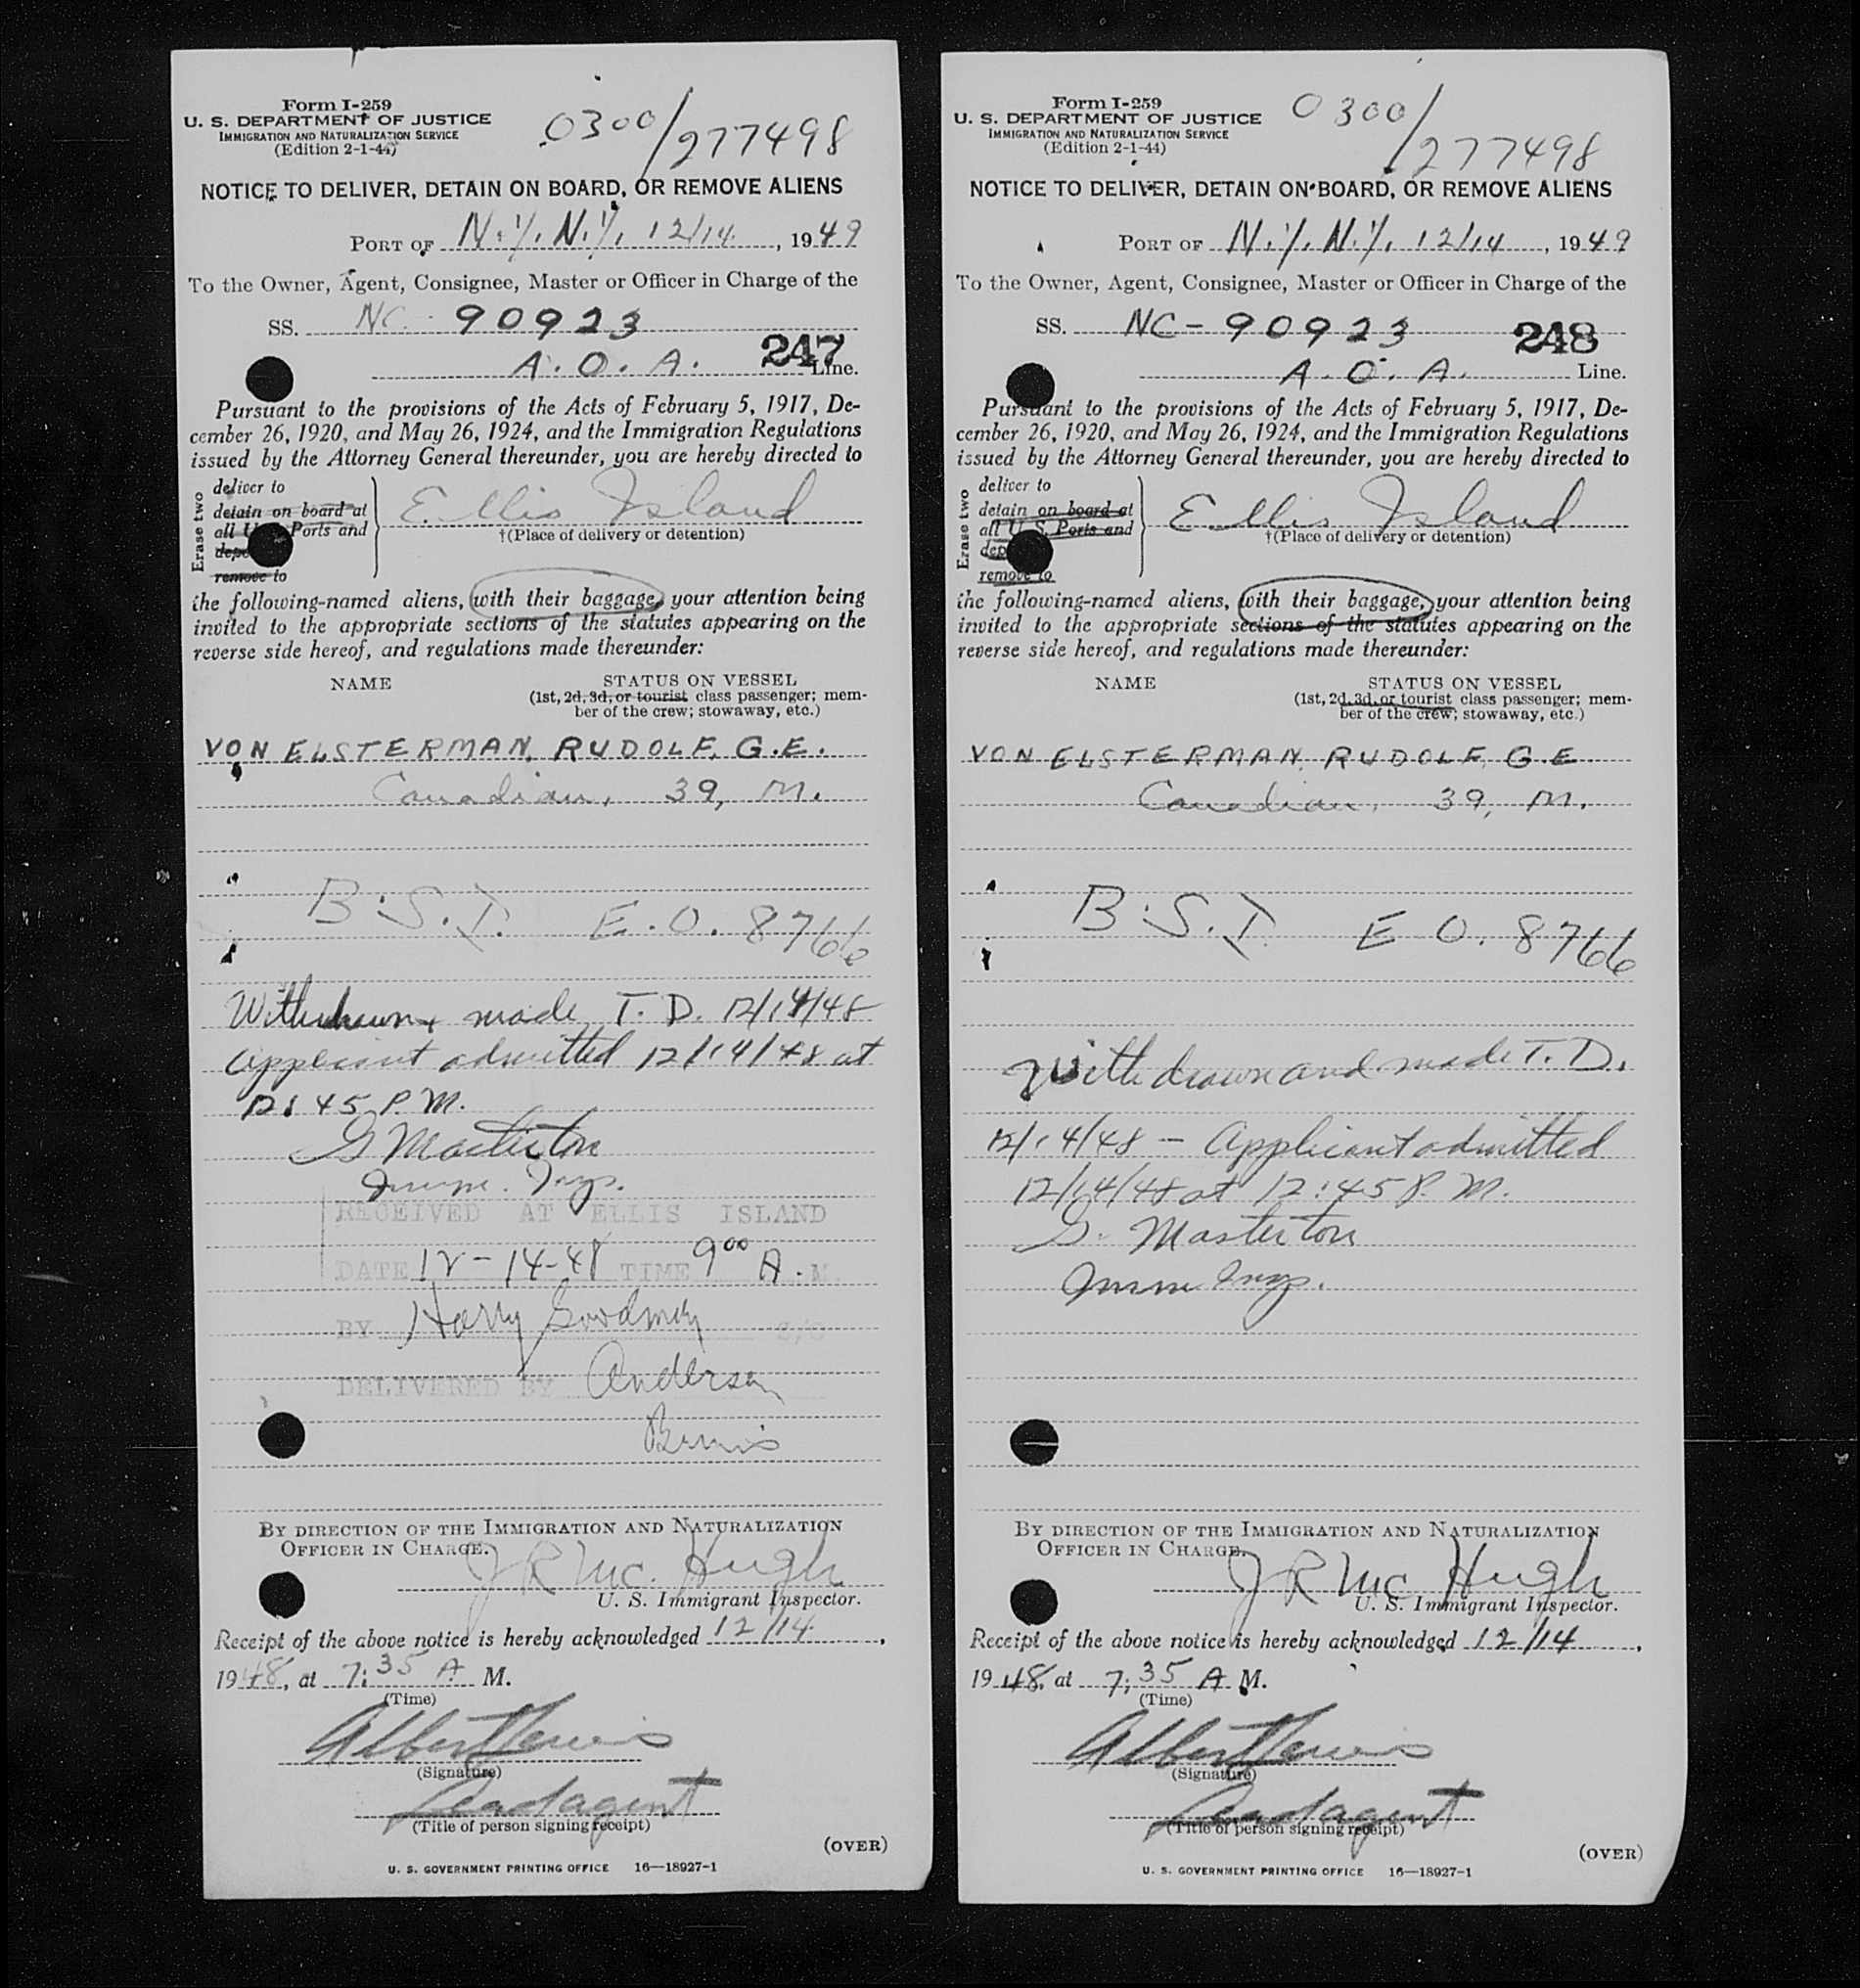 Form I-259
U. S. DEPARTMENT OF JUSTICE
IMMIGRATION AND NATURALIZATION SERVICE
(Edition 2-1-44)
0300/277498
NOTICE TO DELIVER, DETAIN ON BOARD, OR REMOVE ALIENS
PORT OF N.Y. N.Y. 12/14, 1949
To the Owner, Agent, Consignee, Master or Officer in Charge of the
SS. NC - 90923
247
A. O. A. Line.
Pursuant to the provisions of the Acts of February 5, 1917, De-
cember 26, 1920, and May 26, 1924, and the Immigration Regulations
issued by the Attorney General thereunder, you are hereby directed to
Erase two
deliver to
detain on board at
all U Ports and
remove to
Ellis Island
†(Place of delivery or detention)
the following-named aliens, with their baggage, your attention being
invited to the appropriate sections of the statutes appearing on the
reverse side hereof, and regulations made thereunder:
NAME STATUS ON VESSEL
(1st, 2d, 3d, or tourist class passenger; mem-
ber of the crew; stowaway, etc.)
VON ELSTERMAN, RUDOLF, G.E.
Canadian, 39, M.
B.S.I. E.O. 8766
Withdrawn + made T. D. 12/14/48
Applicant admitted 12/14/48 at
12:45 P.M.
G Masterton
Imm. Insp.
RECEIVED AT ELLIS ISLAND
DATE 12-14-48 TIME 9 00 A.M.
BY Harry Goodman
DELIVERED BY Anderson
BY DIRECTION OF THE IMMIGRATION AND NATURALIZATION
OFFICER IN CHARGE.
J R McHugh
U. S. Immigrant Inspector.
Receipt of the above notice is hereby acknowledged 12/14,
1948, at 7:35 A. M.
(Time)
Albert Lewis
(Signature)
(Title of person signing receipt)
(OVER)
U. S. GOVERNMENT PRINTING OFFICE 16—18927-1
Form I-259
U. S. DEPARTMENT OF JUSTICE
IMMIGRATION AND NATURALIZATION SERVICE
(Edition 2-1-44)
0300/277498
NOTICE TO DELIVER, DETAIN ON BOARD, OR REMOVE ALIENS
PORT OF N.Y. N.Y. 12/14, 1949
To the Owner, Agent, Consignee, Master or Officer in Charge of the
SS. NC - 90923
248
A. O. A. Line.
Pursuant to the provisions of the Acts of February 5, 1917, De-
cember 26, 1920, and May 26, 1924, and the Immigration Regulations
issued by the Attorney General thereunder, you are hereby directed to
Erase two
deliver to
detain on board at
all U. S. Ports and
remove to
Ellis Island
†(Place of delivery or detention)
the following-named aliens, with their baggage, your attention being
invited to the appropriate sections of the statutes appearing on the
reverse side hereof, and regulations made thereunder:
NAME STATUS ON VESSEL
(1st, 2d, 3d, or tourist class passenger; mem-
ber of the crew; stowaway, etc.)
VON ELSTERMAN, RUDOLF, G.E
Canadian, 39, M.
B.S.I. E O. 8766
Withdrawn and made T. D.
12/14/48 - Applicant admitted
12/14/48 at 12:45 P. M.
G. Masterton
Imm Insp.
BY DIRECTION OF THE IMMIGRATION AND NATURALIZATION
OFFICER IN CHARGE.
J R McHugh
U. S. Immigrant Inspector.
Receipt of the above notice is hereby acknowledged 12/14,
1948, at 7:35 A M.
(Time)
Albert Lewis
(Signature)
(Title of person signing receipt)
(OVER)
U. S. GOVERNMENT PRINTING OFFICE 16—18927-1